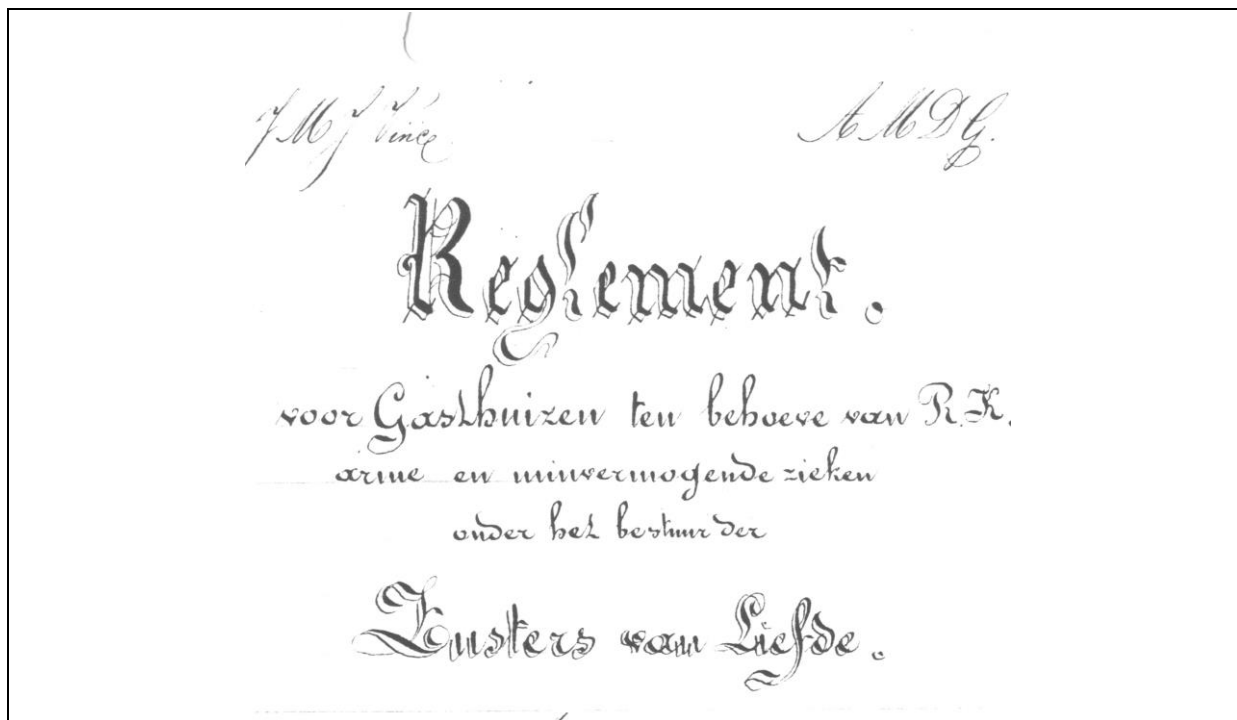 J M J Vince A M D G.
Reglement.
voor Gasthuizen ten behoeve van R. K.
arme en minvermogende zieken
onder het bestuur der
Zusters van Liefde.